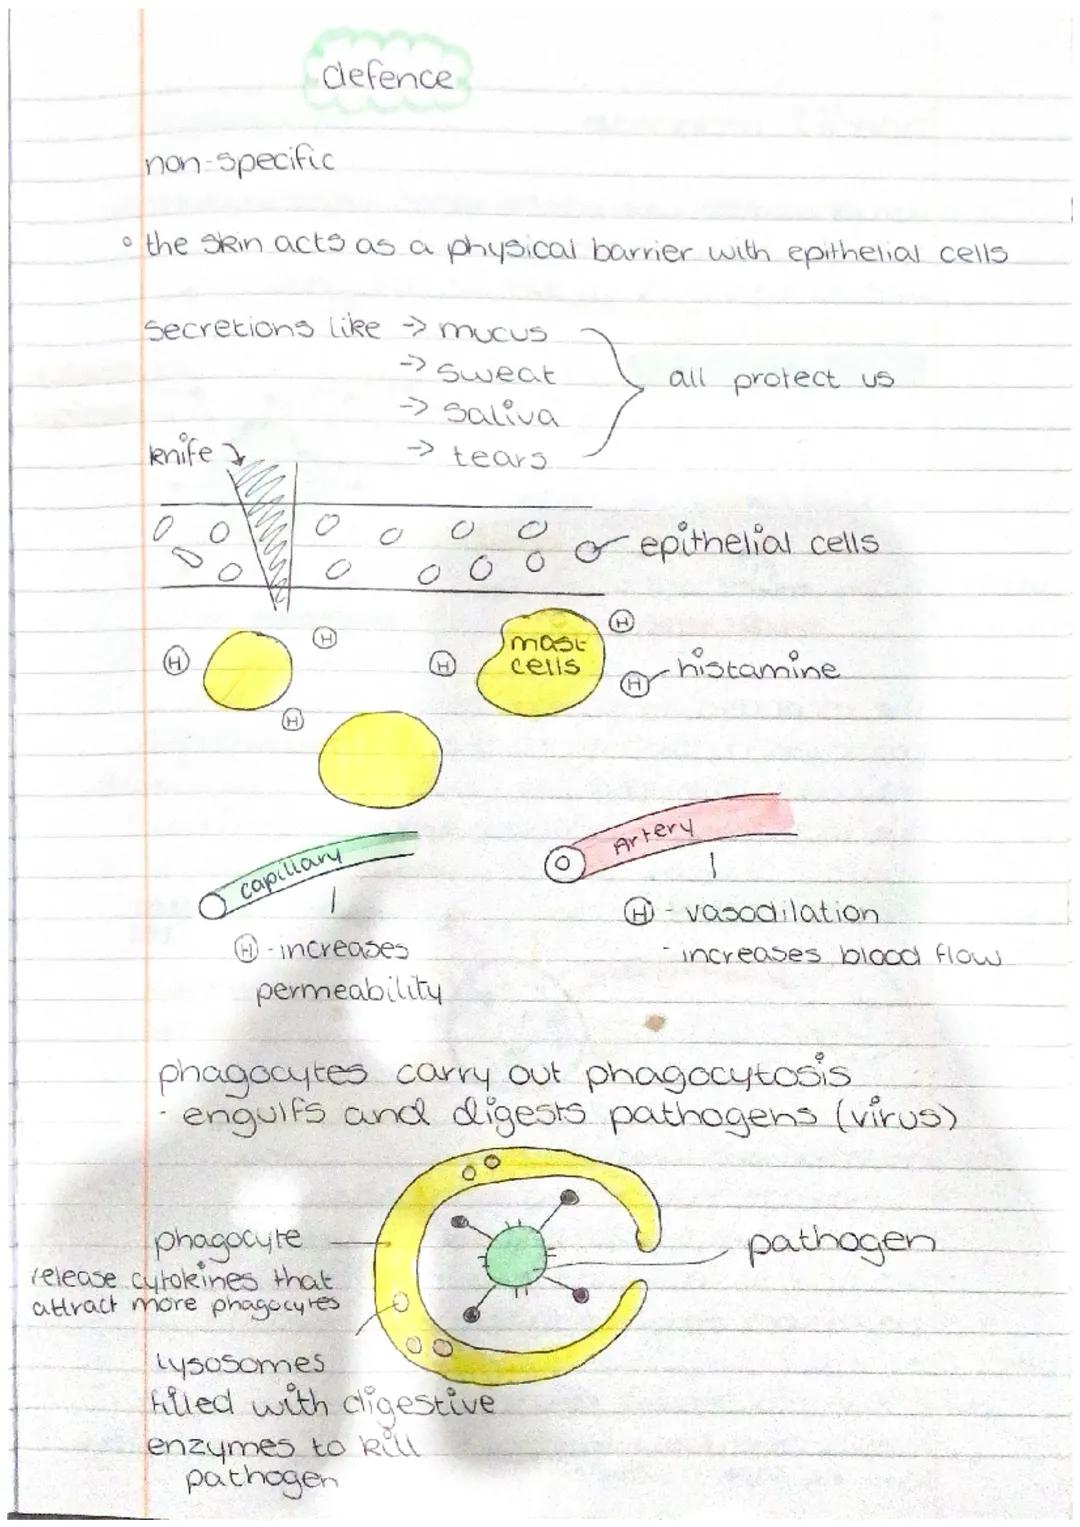 defence
non-specific
the skin acts as a physical barrier with epithelial cells
secretions like -> mucus
-> sweat
-> saliva
-> tears
all protect us
knife
epithelial cells
H
H
H
H
H
mast
cells
H - histamine
capillary
Artery
H - increases
permeability
H - vasodilation
- increases blood flow
phagocytes carry out phagocytosis
- engulfs and digests pathogens (virus)
phagocyte
release cytokines that
attract more phagocytes
pathogen
lysosomes
filled with digestive
enzymes to kill
pathogen